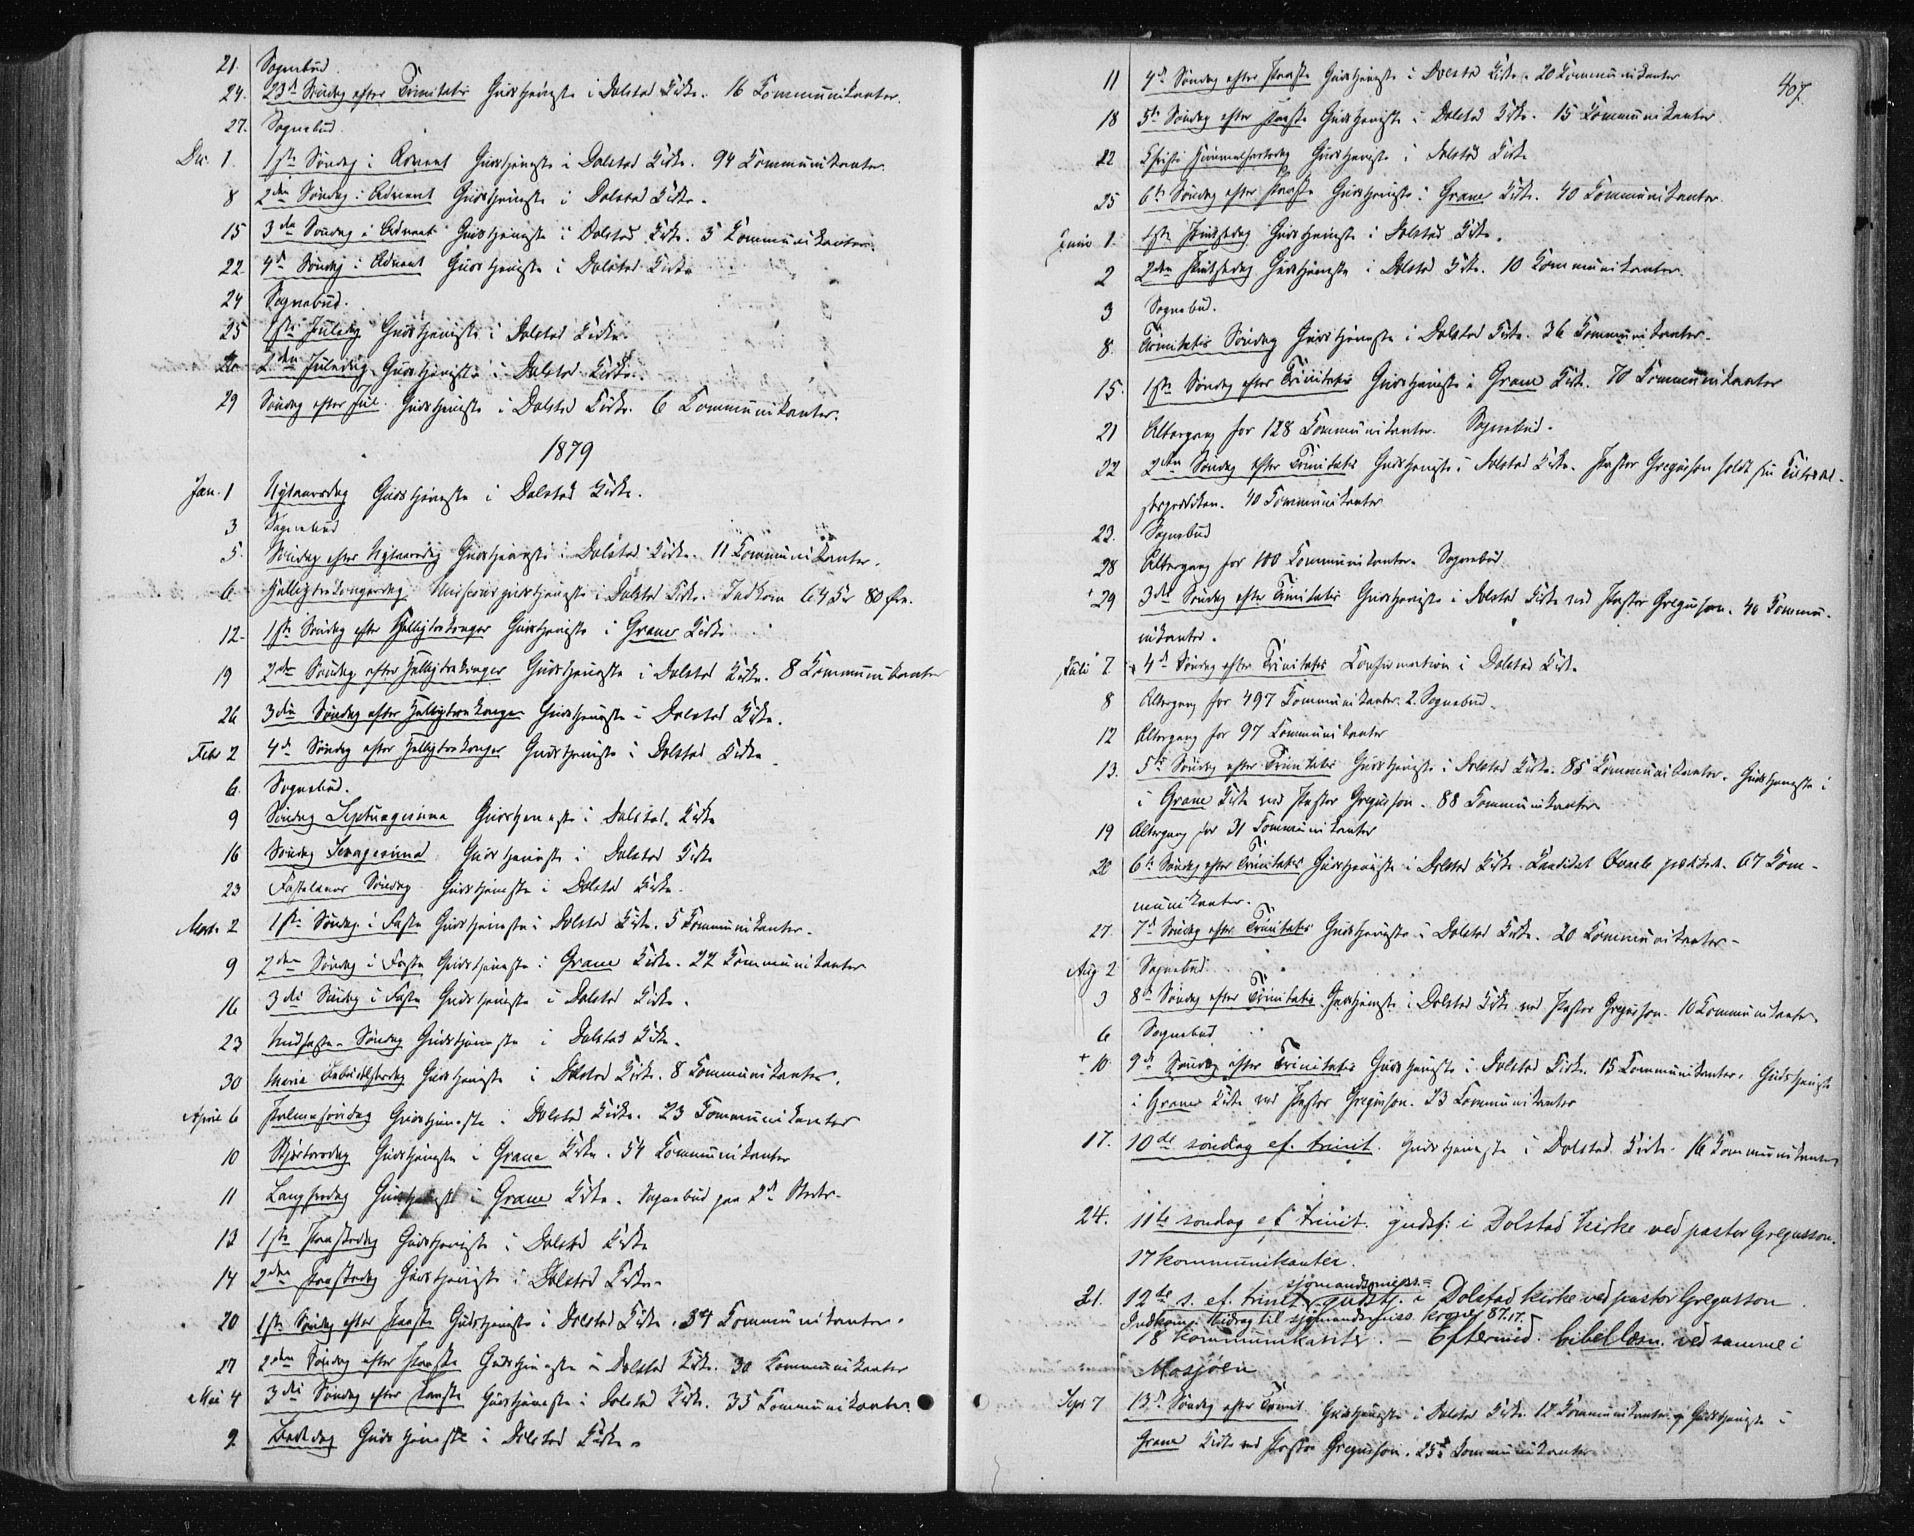 21. Sognebud.
24. 23de Søndag efter Trinitatis Gudstjeneste i Dolstad Kirke. 16 Kommunikanter.
27. Sognebud.
Dec. 1. 1ste Søndag i Advent Gudstjeneste i Dolstad Kirke. 94 Kommunikanter.
8 2den Søndag i Advent Gudstjeneste i Dolstad Kirke.
15 3die Søndag i Advent Gudstjeneste i Dolstad Kirke. 5 Kommunikanter.
22. 4de Søndag i Advent Gudstjeneste i Dolstad Kirke
24 Sognebud.
25 1ste Juledag Gudstjeneste i Dolstad Kirke.
26 2den Juledag Gudstjeneste i Dolstad Kirke.
29 Søndag efter Jul. Gudstjeneste i Dolstad Kirke. 6 Kommunikanter.
1879
Jan. 1 Nytaarsdag Gudstjeneste i Dolstad Kirke.
3 Sognebud
5. Søndag efter Nytaarsdag Gudstjeneste i Dolstad Kirke. 11 Kommunikanter.
6 Helligtrekongersdag Missionsgudstjeneste i Dolstad Kirke. Indkom 64 Kr 80 Øre.
12. 1ste Søndag efter Helligtrekonger Gudstjeneste i Grane Kirke
19 2den Søndag efter Helligtrekonger Gudstjeneste i Dolstad Kirke. 8 Kommunikanter
26 3die Søndag efter Helligtrekonger Gudstjeneste i Dolstad Kirke.
Febr 2 4de Søndag efter Helligtrekonger Gudstjeneste i Dolstad Kirke
6. Sognebud.
9 Søndag Septuagesima Gudstjeneste i Dolstad Kirke
16 Søndag Sexagesima Gudstjeneste i Dolstad Kirke
23 Fastelavns Søndag Gudstjeneste i Dolstad Kirke.
Marts 2 1ste Søndag i Faste Gudstjeneste i Dolstad Kirke. 5 Kommunikanter.
9 2den Søndag i Faste Gudstjeneste i Grane Kirke. 22 Kommunikanter
16 3die Søndag i Faste Gudstjeneste i Dolstad Kirke.
23 Midfaste-Søndag Gudstjeneste i Dolstad Kirke.
30 Maria Bebudelsesdag Gudstjeneste i Dolstad Kirke. 8 Kommunikanter.
April 6 Palmesøndag Gudstjeneste i Dolstad Kirke. 23 Kommunikanter
10 Skjærtorsdag Gudstjeneste i Grane Kirke. 54 Kommunikanter
11 Langfredag Gudstjeneste i Grane Kirke. Sognebud paa 2de Steder.
13 1ste Paaskedag Gudstjeneste i Dolstad Kirke
14 2den Paaskedag Gudstjeneste i Dolstad Kirke.
20 1ste Søndag efter Paaske Gudstjeneste i Dolstad Kirke. 34 Kommunikanter.
27 2den Søndag efter Paaske Gudstjeneste i Dolstad Kirke. 30 Kommunikanter
Mai 4 3die Søndag efter Paaske Gudstjeneste i Dolstad Kirke. 35 Kommunikanter
9 Bededag Gudstjeneste i Dolstad Kirke.
407.
11 4de Søndag efter Paaske Gudstjeneste i Dolstad Kirke. 20 Kommunikanter
18 5te Søndag efter Paaske Gudstjeneste i Dolstad Kirke. 15 Kommunikanter.
22 Christi Himmelfartsdag Gudstjeneste i Dolstad Kirke
25 6te Søndag efter Paaske Gudstjeneste i Grane Kirke. 40 Kommunikanter.
Juni 1. 1ste Pintsedag Gudstjeneste i Dolstad Kirke.
2 2den Pintsedag Gudstjeneste i Dolstad Kirke. 10 Kommunikanter.
3 Sognebud.
8. Trinitatis Søndag Gudstjeneste i Dolstad Kirke. 36 Kommunikanter.
15. 1ste Søndag efter Trinitatis Gudstjeneste i Grane Kirke. 70 Kommunikanter
21 Altergang for 128 Kommunikanter. Sognebud.
22 2den Søndag efter Trinitatis Gudstjeneste i Dolstad Kirke. Pastor Gregusson holdt sin Tiltrædel-
sesprædiken. 40 Kommunikanter
23. Sognebud
28 Altergang for 100 Kommunikanter. Sognebud
+ 29 3die Søndag efter Trinitatis Gudstjeneste i Dolstad Kirke ved Pastor Gregusson. 40 Kommu-
nikanter.
Juli 7 4de Søndag efter Trinitatis Konfirmation i Dolstad Kirke
8 Altergang for 497 Kommunikanter. 2 Sognebud.
12 Altergang for 97 Kommunikanter
13. 5te Søndag efter Trinitatis Gudstjeneste i Dolstad Kirke. 85 Kommunikanter. Gudstjeneste i
i Grane Kirke ved Pastor Gregusson. 88 Kommunikanter
19 Altergang for 31 Kommunikanter
20 6te Søndag efter Trinitatis Gudstjeneste i Dolstad Kirke. Kandidat prækede. 67 Kom-
munikanter.
27. 7de Søndag efter Trinitatis Gudstjeneste i Dolstad Kirke. 20 Kommunikanter.
Aug 2 Sognebud.
3 8de Søndag efter Trinitatis Gudstjeneste i Dolstad Kirke ved Pastor Gregusson. 10 Kommunikanter.
6 Sognebud
+ 10 9de Søndag efter Trinitatis Gudstjeneste i Dolstad Kirke. 15 Kommunikanter. Gudstjeneste
i Grane Kirke ved Pastor Gregusson. 23 Kommunikanter
17. 10de søndag ef. trinit. Gudstjeneste i Dolstad Kirke. 16 Kommunikanter
24. 11te søndag ef trinit. gudst: i Dolstad kirke ved pastor Gregusson.
17 kommunikanter.
sjømandsmiss.=
31. 12te s. ef. trinit. gudstj. i Dolstad kirke ved pastor Gregusson
Indkom. bidrag til sjømandsmiss. kroner 87.17.
18 kommunikanter. – Eftermid. bibellæsn. ved samme i
Mosjøen
Sept 7 13de Søndag efter Trinit. Gudstjeneste i Dolstad Kirke. 12 Kommunikanter og Gudstjeneste i
Grane Kirke ved Pastor Gregusson. 25 Kommunikanter